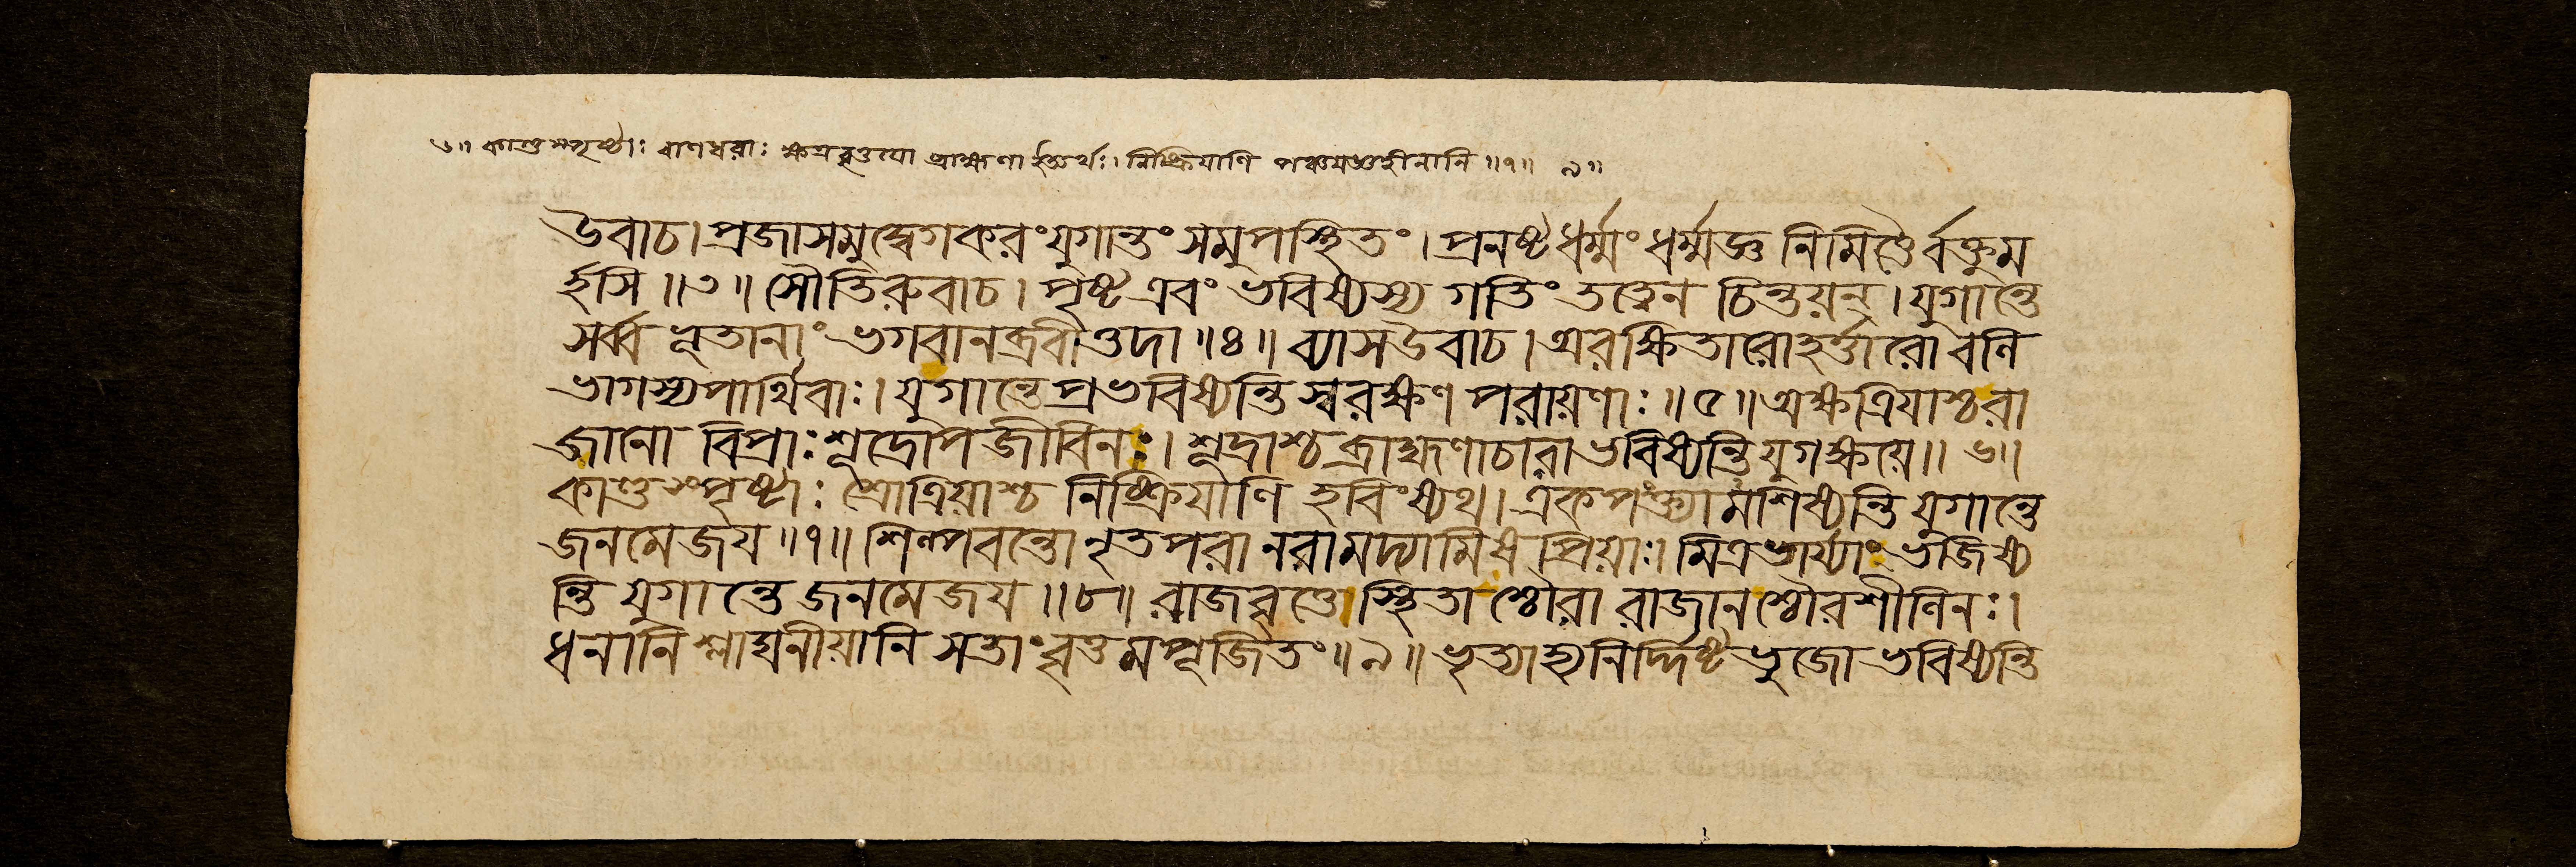 ৬॥ কাণ্ডস্পৃষ্ঠাঃ বাণধরাঃ ক্ষত্রবৃত্তয়ো ব্রাহ্মণা ইত্যর্থঃ। নিষ্ক্রিয়াণি পঞ্চযজ্ঞহীনানি ॥৭॥ ৯॥
উবাচ। প্রজাসমুদ্বেগকরং যুগান্তং সমুপস্থিতং। প্রনষ্টধর্ম্মং ধর্ম্মজ্ঞ নিমিত্তৈর্বক্তুম
র্হসি ॥৩॥ সৌতিরুবাচ। পৃষ্ট এবং ভবিষ্যস্য গতিং তত্ত্বেন চিন্তয়ন্। যুগান্তে
সর্ব্বভূতানাং ভগবানব্রবীত্তদা ॥৪॥ ব্যাস উবাচ। অরক্ষিতারো হর্ত্তারো বনি
ভাগস্য পার্থিবাঃ। যুগান্তে প্রভবিষ্যন্তি স্বরক্ষণপরায়ণাঃ ॥৫॥ অক্ষত্রিয়াশ্চ রা
জানো বিপ্রাঃ শূদ্রোপজীবিনঃ। শূদ্রাশ্চ ব্রাহ্মণাচারা ভবিষ্যন্তি যুগক্ষয়ে॥ ৬॥
কাণ্ডস্পৃষ্টাঃ শ্রোত্রিয়াশ্চ নিষ্ক্রিয়াণি হবিংষ্যথ। একপংক্ত্যামশিষ্যন্তি যুগান্তে
জনমেজয় ॥৭॥ শিল্পবন্তো নৃতপরা নরা মদ্যামিষপ্রিয়াঃ। মিত্রভার্য্যাং ভজিষ্য
ন্তি যুগান্তে জনমেজয় ॥৮॥ রাজবৃত্তে স্থিতাশ্চৌরা রাজানশ্চৌরশীলিনঃ।
ধনানি শ্লাঘনীয়ানি সতাং বৃত্তমপূজিতং॥৯॥ ভৃত্যাহ্যনির্দ্দিষ্টভুজো ভবিষ্যন্তি